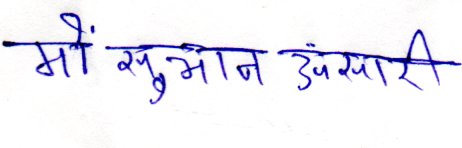 मों सुभान अंसारी